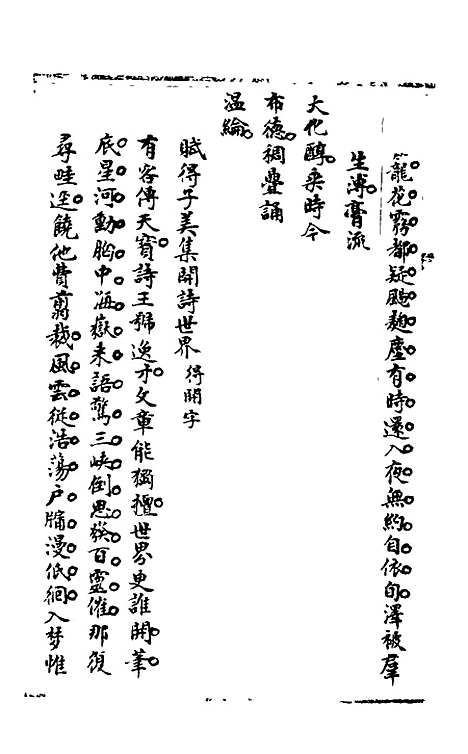 籠花霧都疑颺麴塵有時還入夜無約自依旬澤被羣
生溥膏流
大化醇乘時今
布德稠疊誦
温綸
賦得子美集開詩世界得開字
有客傳天寶詩王號逸才文章能獨擅世界更誰開筆
底星河動胸中海嶽来語驚三峽倒思發百靈催那復
尋畦逕饒他費翦裁風雲從浩蕩戶牖漫低徊入夢惟